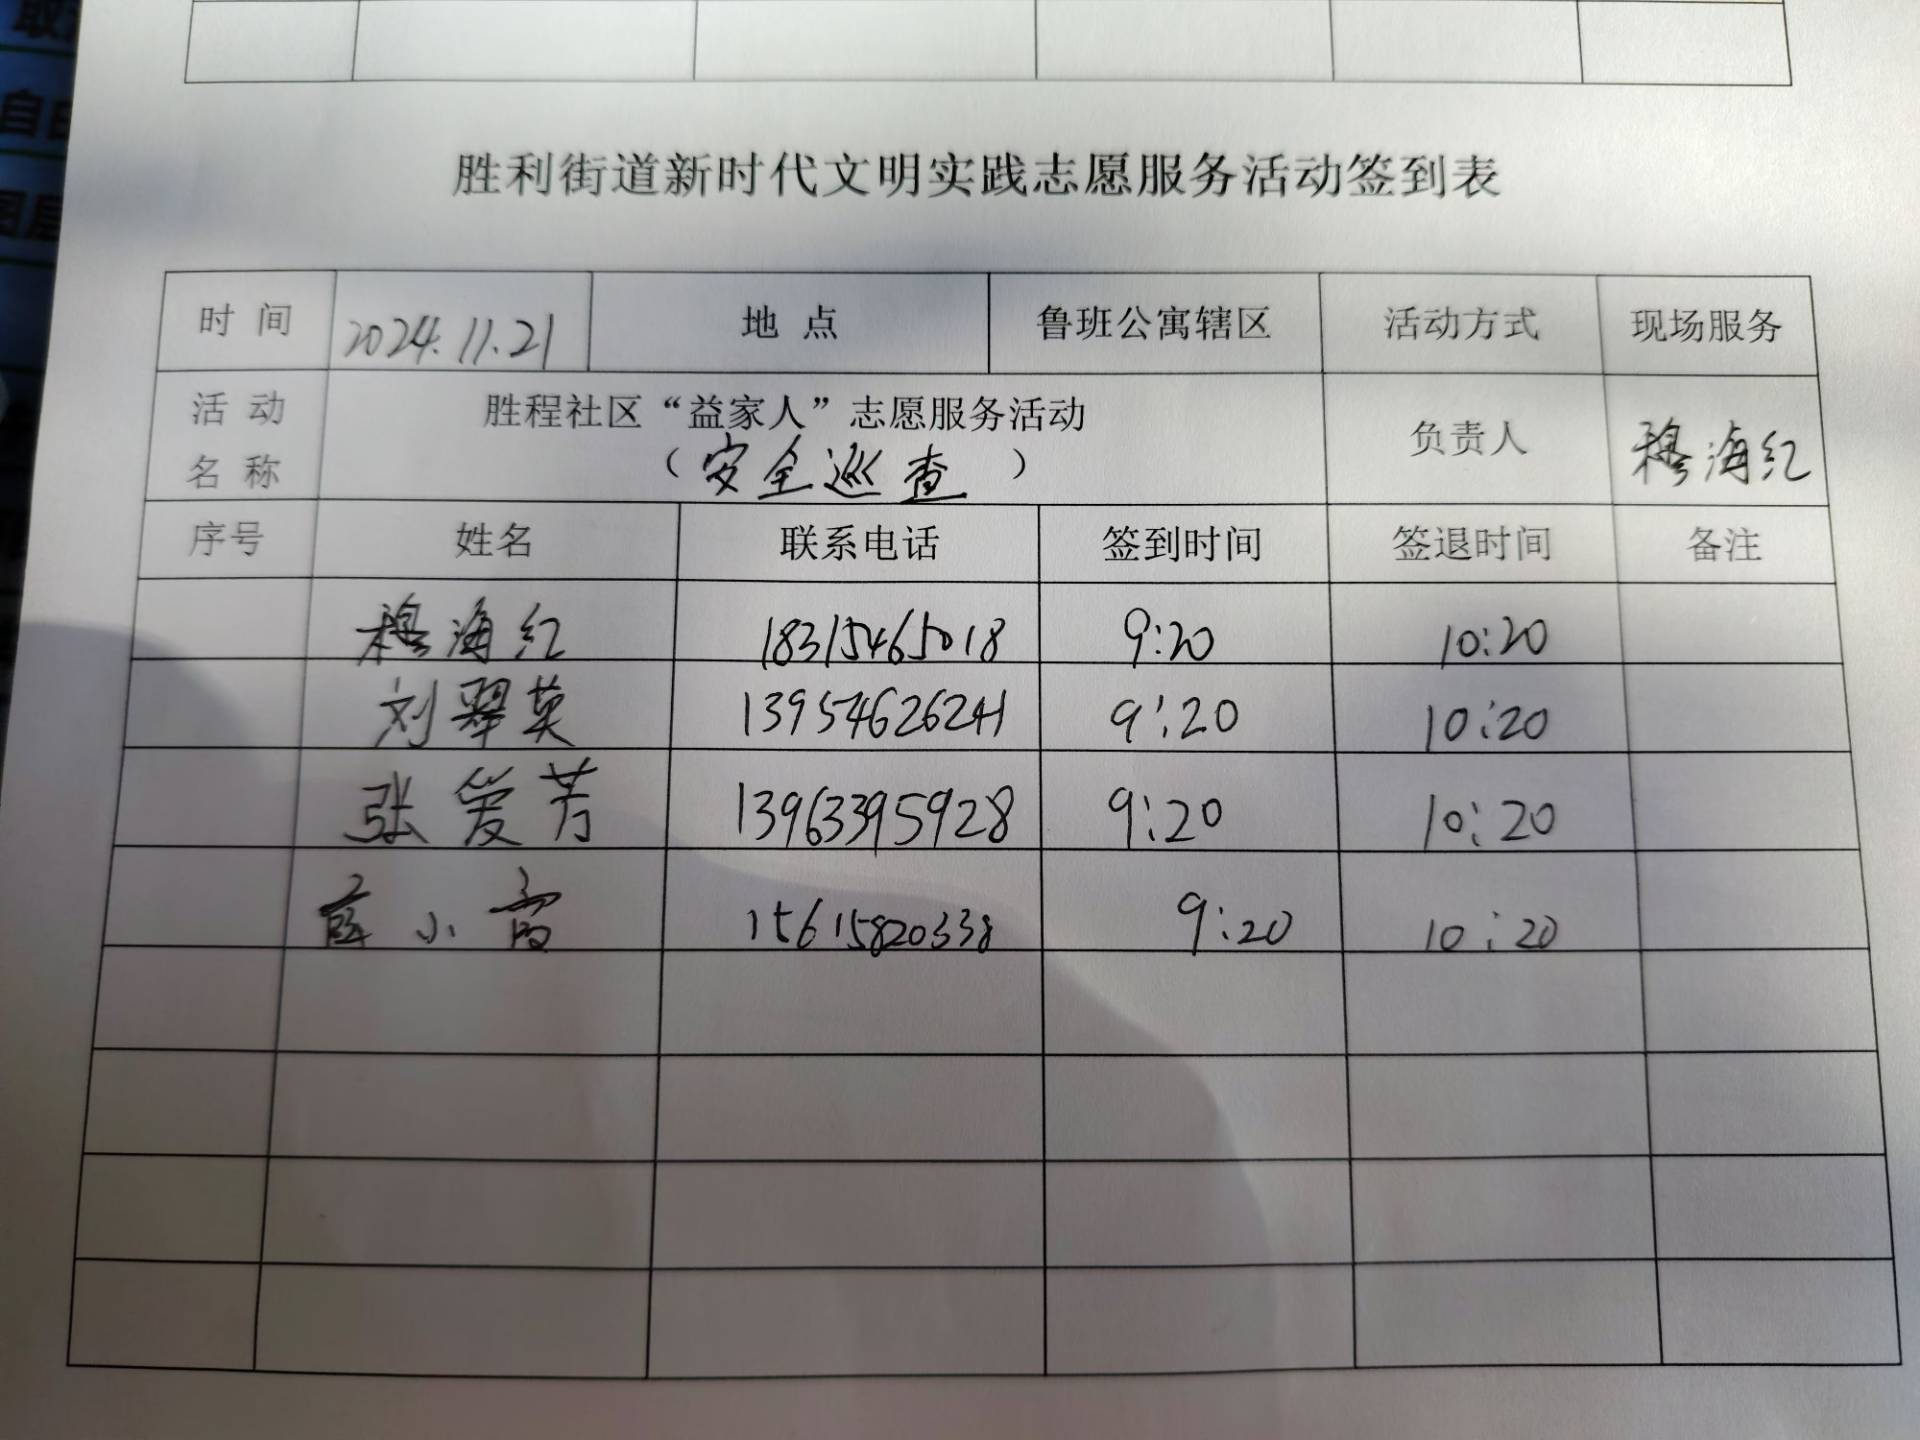 胜利街道新时代文明实践志愿服务活动签到表
时 间 2024.11.21 地 点 鲁班公寓辖区 活动方式 现场服务
活 动 名 称 胜程社区“益家人”志愿服务活动 负责人 穆海红
（安全巡查）
序号 姓名 联系电话 签到时间 签退时间 备注
穆海红 18315465018 9:20 10:20
刘翠英 13954626241 9:20 10:20
张爱芳 13963395928 9:20 10:20
薛小富 15615820338 9:20 10:20
自由
图层